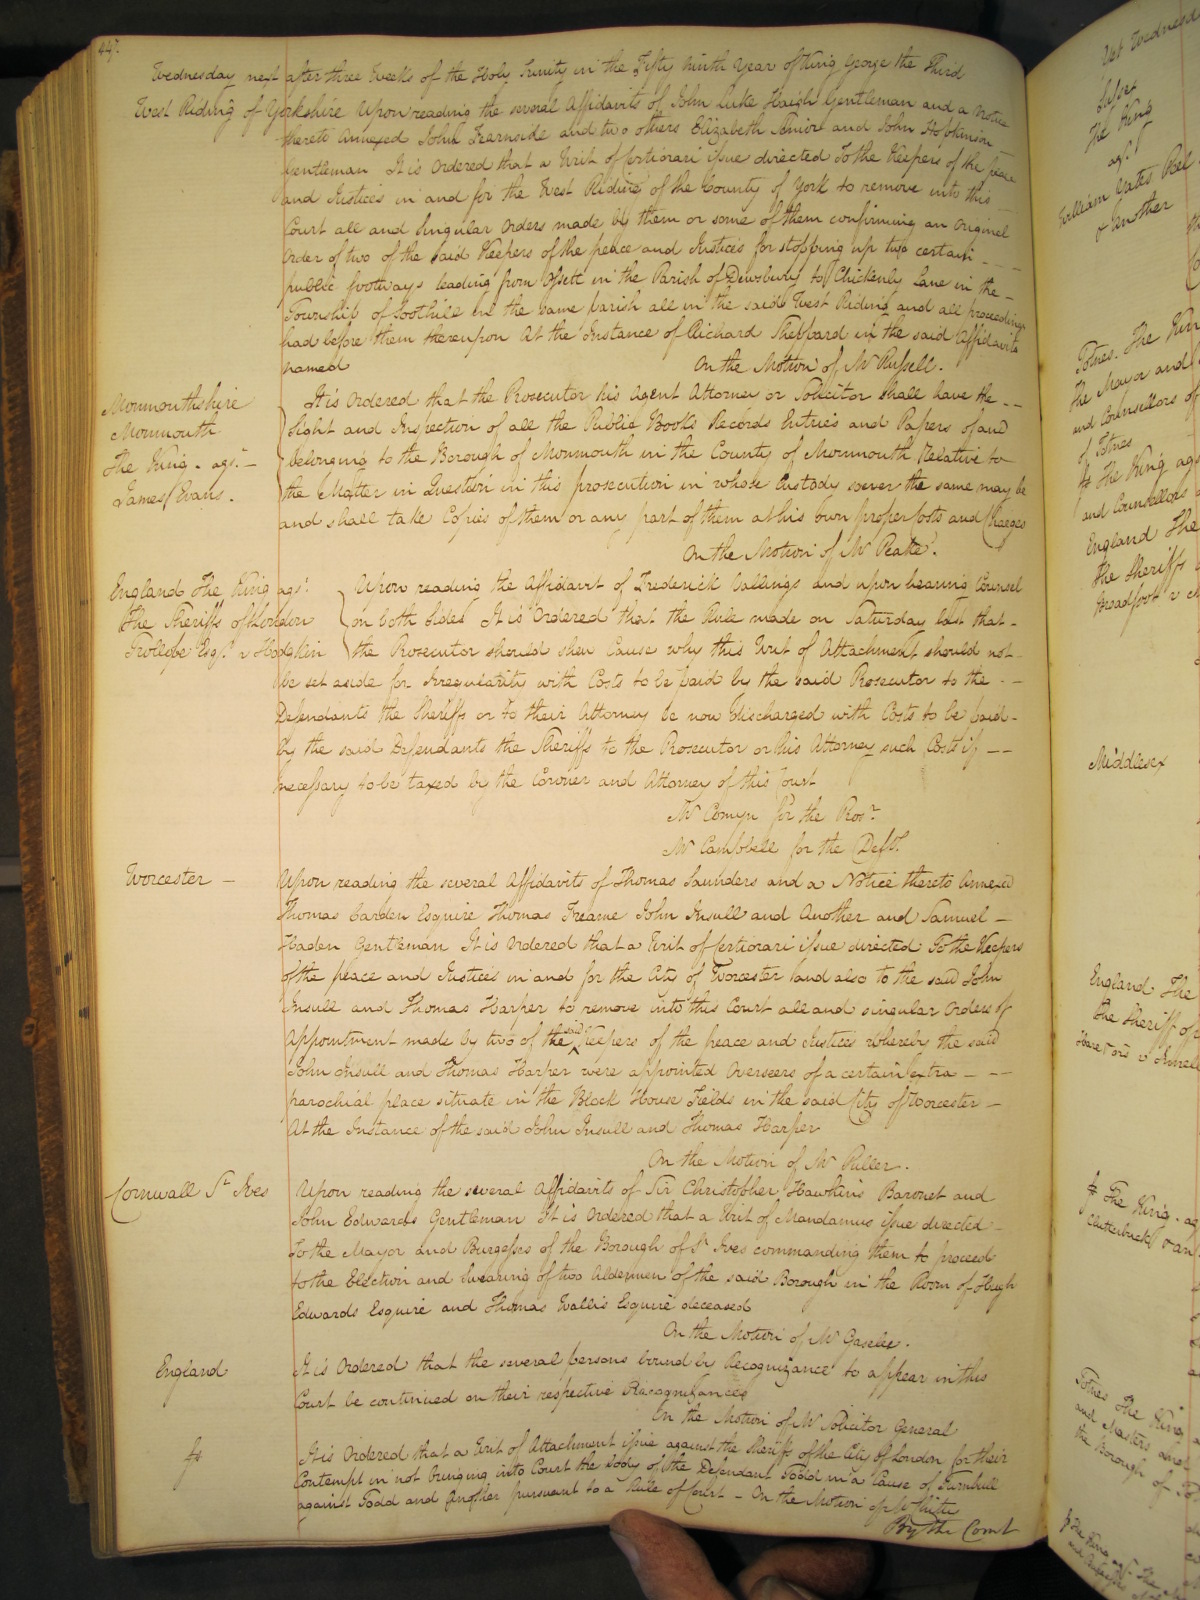 447.
Wednesday next after three Weeks of the Holy Trinity in the Fifty Ninth Year of King George the Third
West Riding of Yorkshire Upon reading the several Affidavits of John Luke Haigh Gentleman and a Notice
thereto annexed John Fearnside and two others Elizabeth Senior and John Hopkinson
Gentleman It is Ordered that a Writ of Certiorari issue directed To the Keepers of the peace
and Justices in and for the West Riding of the County of York to remove into this
Court all and singular orders made by them or some of them confirming an Original
Order of two of the said Keepers of the peace and Justices for stopping up two certain
public footways leading from Ossett in the Parish of Dewsbury to Chickenly Lane in the
Township of Soothill in the same parish all in the said West Riding and all proceedings
had before them thereupon At the Instance of Richard Sheppard in the said Affidavits
named On the Motion of Mr Russell.
Monmouthshire
Monmouth
The King agst.
James Evans.
It is Ordered that the Prosecutor his Agent Attorney or Solicitor shall have the
Sight and Inspection of all the Public Books Records Entries and Papers of and
belonging to the Borough of Monmouth in the County of Monmouth Relative to
the Matter in Question in this prosecution in whose Custody soever the same may be
and shall take Copies of them or any part of them at his own proper Costs and Charges
On the Motion of Mr Peake.
England The King agst.
The Sheriffs of London
Trollope Esqr. v Hodgkin
Upon reading the Affidavit of Frederick Vallings and upon hearing Counsel
on both sides It is Ordered that the Rule made on Saturday last that
the Prosecutor should shew Cause why this Writ of Attachment should not
be set aside for Irregularity with Costs to be paid by the said Prosecutor to the
Defendants the Sheriffs or to their Attorney be now discharged with Costs to be paid
by the said Defendants the Sheriffs to the Prosecutor or his Attorney such Costs if
necessary to be taxed by the Coroner and Attorney of this Court
Mr Comyn for the Prosr.
Mr Campbell for the Deft.
Worcester
Upon reading the several Affidavits of Thomas Saunders and a Notice thereto Annexed
Thomas Carden Esquire Thomas Freame John Insull and Another and Samuel
Haden Gentleman It is Ordered that a Writ of Certiorari issue directed To the Keepers
of the peace and Justices in and for the City of Worcester and also to the said John
Insull and Thomas Harper to remove into this Court all and singular Orders of
Appointment made by two of the said Keepers of the peace and Justices whereby the said
John Insull and Thomas Harper were appointed Overseers of a certain Extra
parochial place situate in the Block House Fields in the said City of Worcester
At the Instance of the said John Insull and Thomas Harper
On the Motion of Mr Puller.
Cornwall St. Ives
Upon reading the several Affidavits of Sir Christopher Hawkins Baronet and
John Edwards Gentleman It is Ordered that a Writ of Mandamus issue directed
To the Mayor and Burgesses of the Borough of St. Ives commanding them to proceed
to the Election and Swearing of two Aldermen of the said Borough in the Room of Hugh
Edwards Esquire and Thomas Wallis Esquire deceased
On the Motion of Mr Gaselee.
England
It is Ordered that the several persons bound by Recognizance to appear in this
Court be continued on their respective Recognizances
On the Motion of Mr Solicitor General
It is Ordered that a Writ of Attachment issue against the Sheriffs of the City of London for their
Contempt in not bringing into Court the body of the Defendant Todd in a Cause of Turnbull
against Todd and Another pursuant to a Rule of Court - On the Motion of Mr
By the Court
Sussex
The King
agst.
William Yates
& Another
Totnes. The King
The Mayor and
and Counsellors of
of Totnes
The King agst
and Counsellors
England The
the Sheriffs
Middlesex
England The
the Sheriff of
The King. ag
Clutterbuck
Totnes The King
and Masters
the Borough of